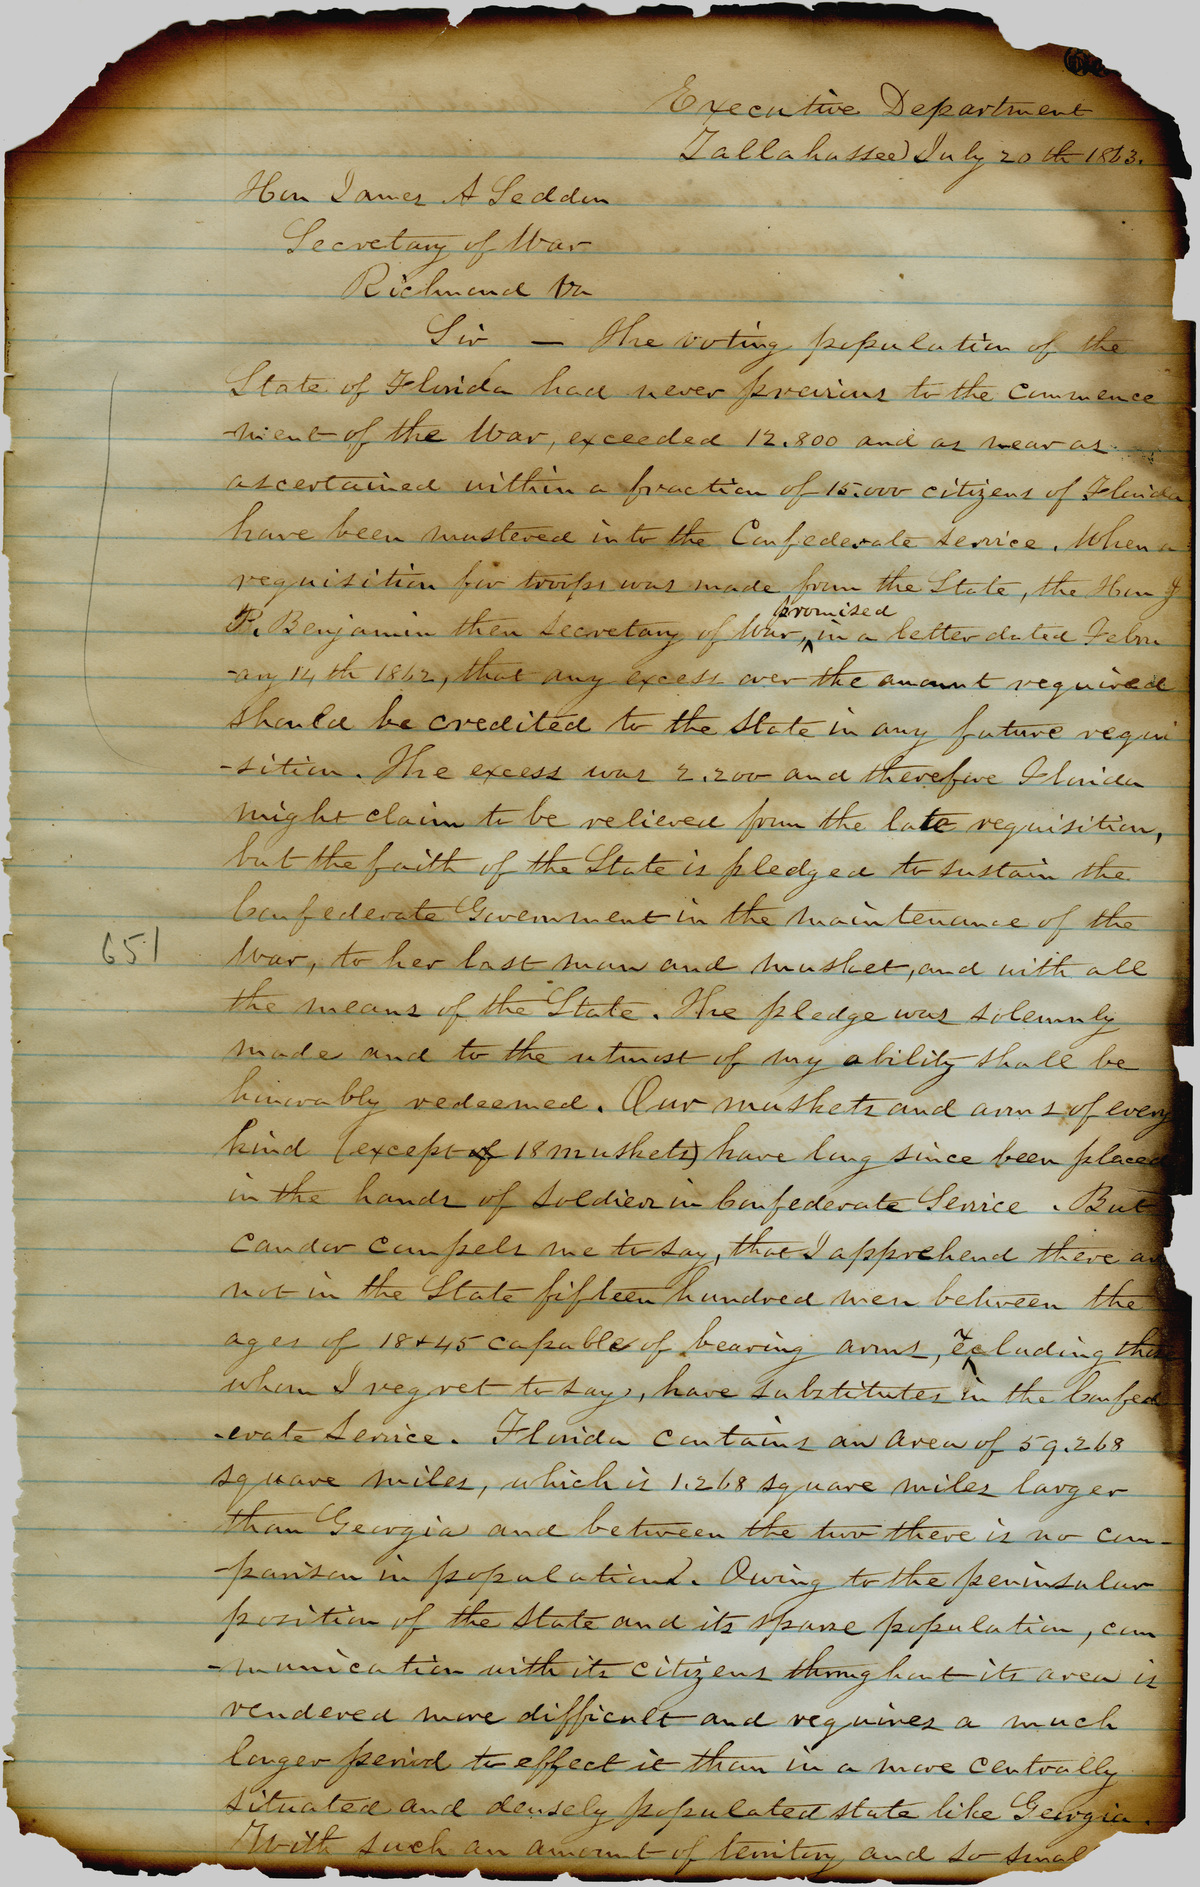 Executive Department
Tallahassee July 20th 1863.
Hon James A Seddon
Secretary of War
Richmond Va
Sir — The voting population of the
State of Florida had never previous to the commence
-ment of the War, exceeded 12.800 and as near as
ascertained within a fraction of 15.000 citizens of Florida
have been mustered into the Confederate service. When a
requisition for troops was made from the State, the Hon J
promised
P. Benjamin then Secretary of War, in a letter dated Febru
-ary 14th 1862, that any excess over the amount required
should be credited to the State in any future requi
-sition. The excess was 2.200 and therefore Florida
might claim to be relieved from the late requisition,
but the faith of the State is pledged to sustain the
Confederate Government in the maintenance of the
651
War, to her last man and musket, and with all
the means of the State. The pledge was solemnly
made and to the utmost of my ability shall be
honorably redeemed. Our muskets and arms of every
kind (except of 18 muskets) have long since been placed
in the hands of soldiers in Confederate Service. But
candor compels me to say, that I apprehend there are
not in the State fifteen hundred men between the
ages of 18 & 45 capable of bearing arms, excluding those
whom I regret to say, have substitutes in the Confed
-erate Service. Florida contains an area of 59.268
square miles, which is 1.268 square miles larger
than Georgia and between the two there is no com-
-parison in population. Owing to the peninsular
position of the State and its sparse population, com
-munication with its citizens throughout its area is
rendered more difficult and requires a much
longer period to effect it than in a more centrally
situated and densely populated state like Georgia.
With such an amount of territory and so small